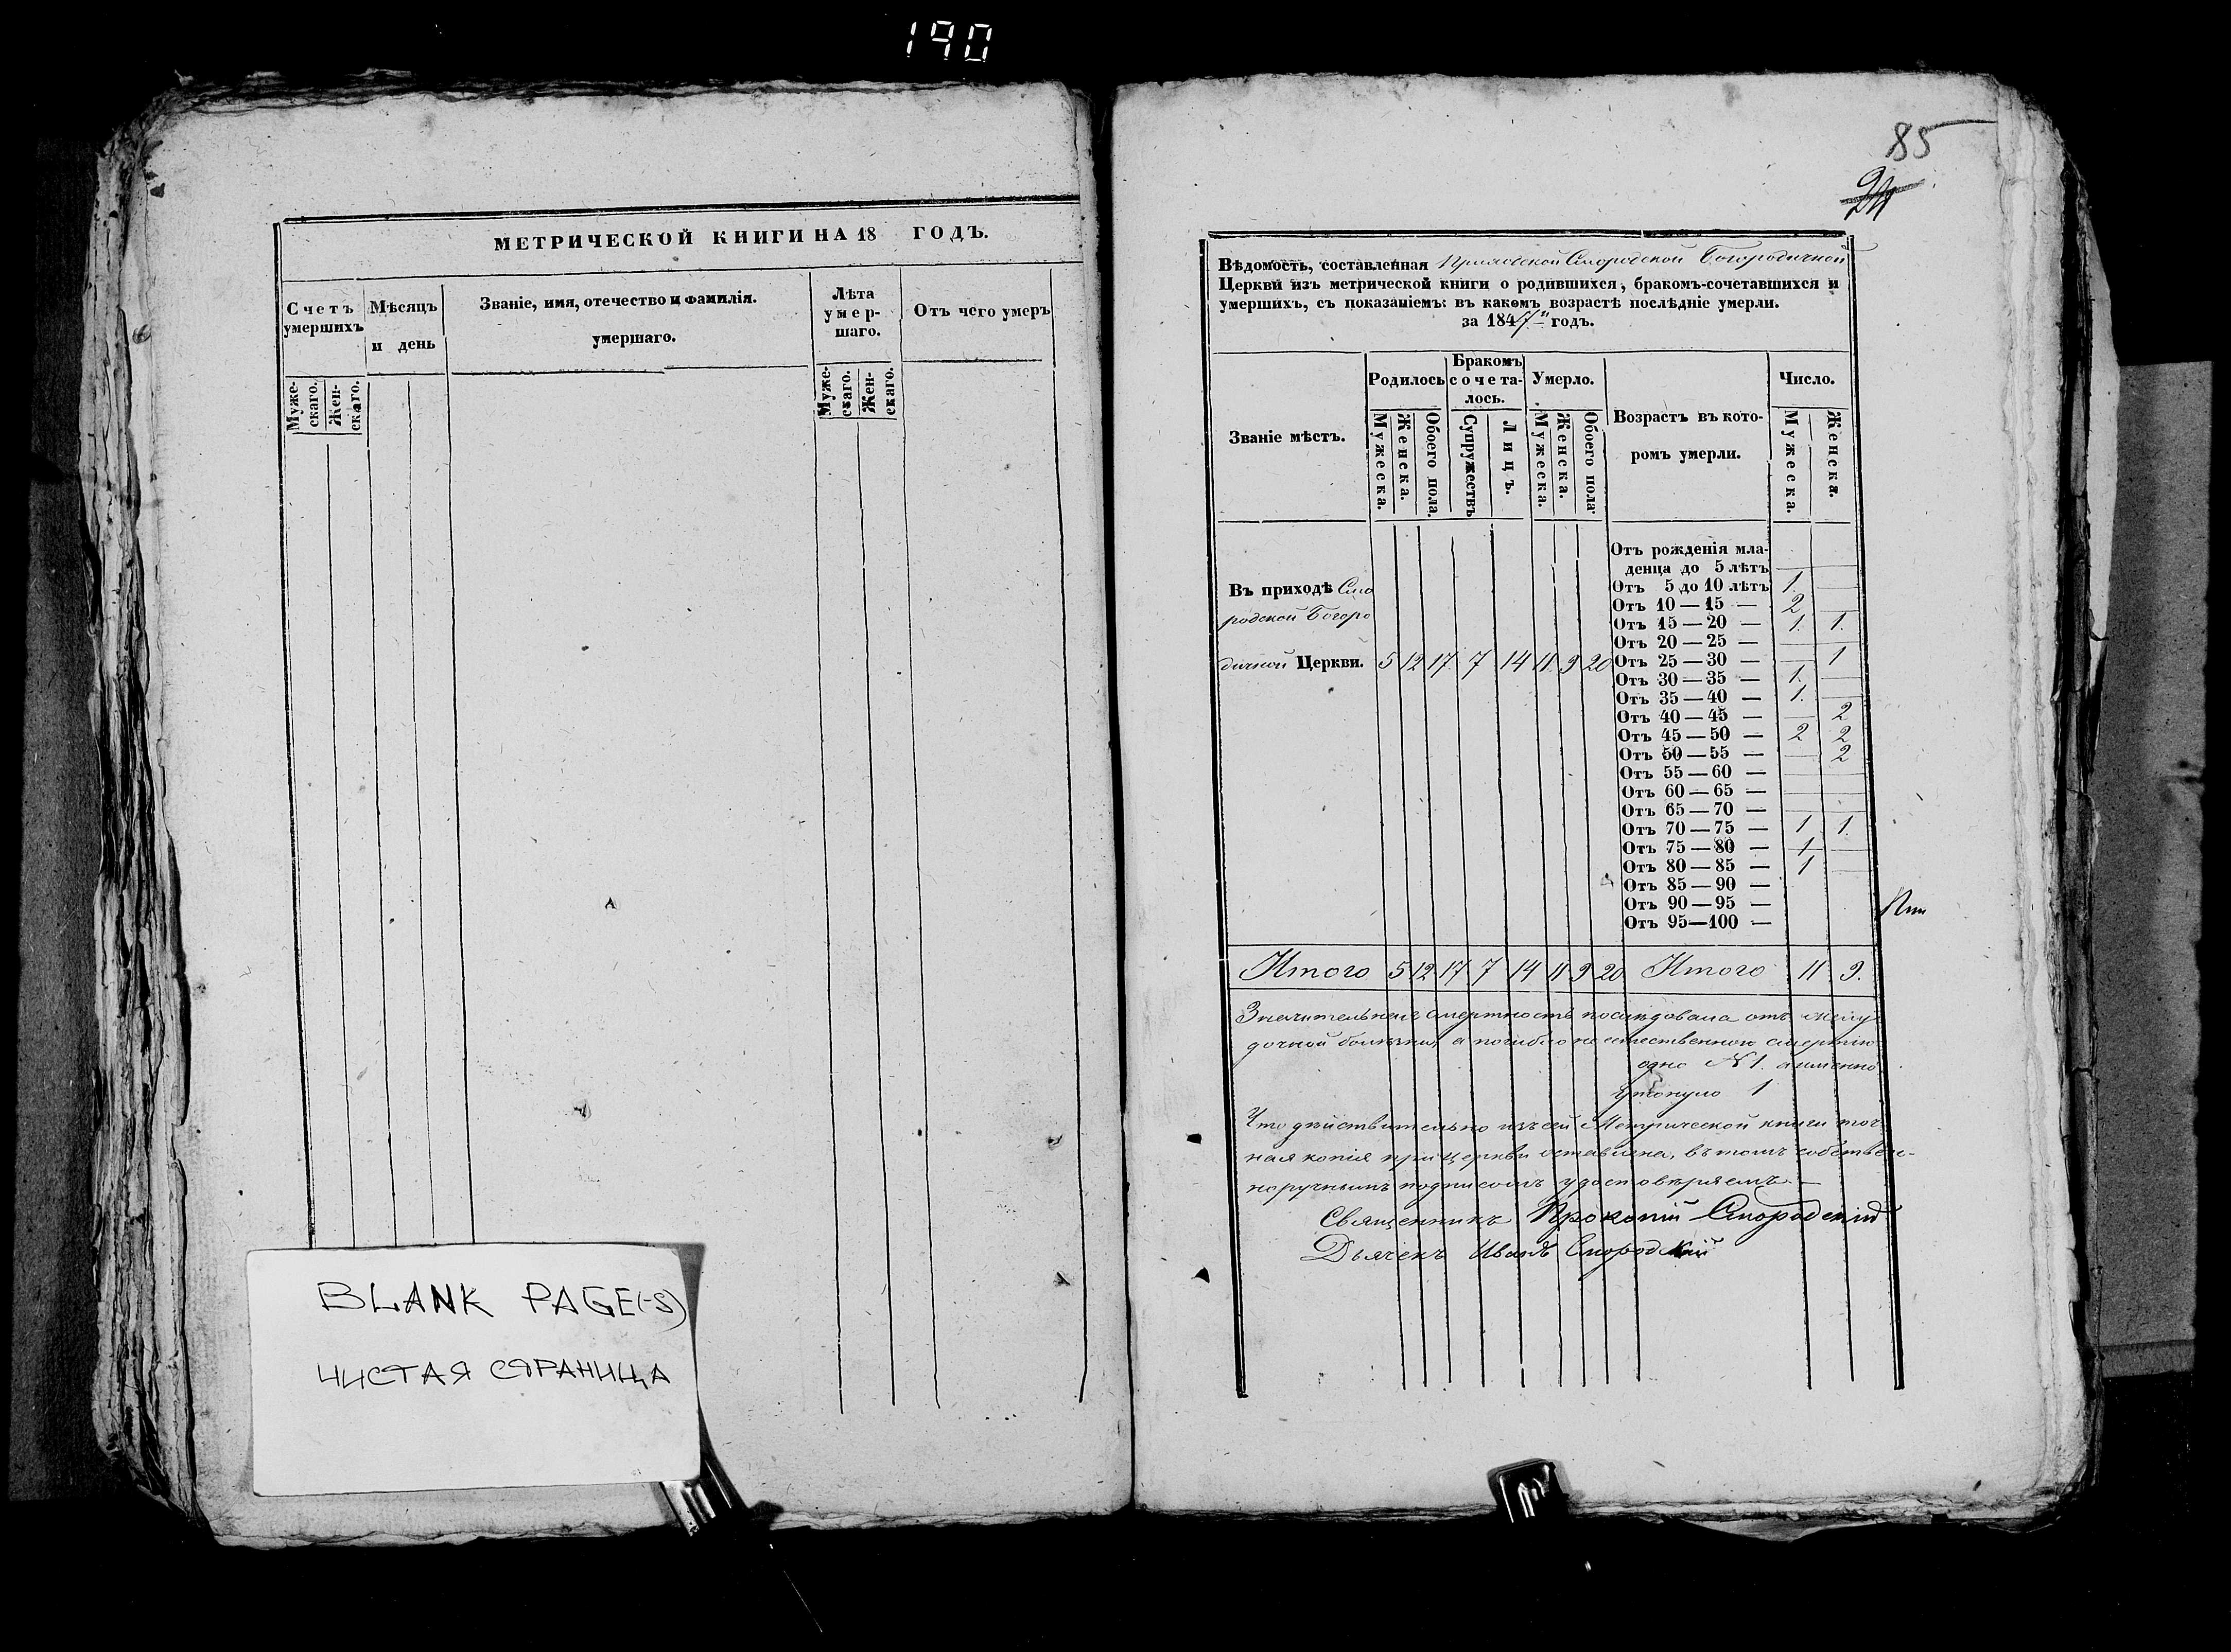 190
МЕТРИЧЕСКОЙ КНИГИ НА 18 ГОДЪ.
Счетъ умершихъ
Мѣсяцъ и день
Званіе, имя, отечество и фамилія. умершаго.
Лѣта умер-шаго.
Отъ чего умеръ
Муже-скаго.
Жен-скаго.
Муже-скаго.
Жен-скаго.
BLANK PAGE(-S)
ЧИСТАЯ СТРАНИЦА
85
Вѣдомость, составленная Смородской Богородичной
Церкви изъ метрической книги о родившихся, бракомъ-сочетавшихся и
умершихъ, съ показаніемъ: въ какомъ возрастѣ послѣдніе умерли.
за 1847й годъ.
Званіе мѣстъ.
Родилось
Бракомъ сочета-лось.
Умерло.
Возрастъ въ кото-ромъ умерли.
Число.
Мужеска.
Женска.
Обоего пола.
Супружествъ
Лицъ.
Мужеска.
Женска.
Обоего пола
Мужеска.
Женска.
Въ приходѣ Смо
родской Богоро
дичной Церкви. 5 12 17 7 14 11 9 20
Отъ рожденія мла-
денца до 5 лѣтъ
Отъ 5 до 10 лѣтъ 1.
Отъ 10 — 15 — 2
Отъ 15 — 20 — 1. 1.
Отъ 20 — 25 —
Отъ 25 — 30 — 1
Отъ 30 — 35 — 1.
Отъ 35 — 40 — 1.
Отъ 40 — 45 — 2
Отъ 45 — 50 — 2 2
Отъ 50 — 55 — 2
Отъ 55 — 60 —
Отъ 60 — 65 —
Отъ 65 — 70 —
Отъ 70 — 75 — 1 1.
Отъ 75 — 80 — 1
Отъ 80 — 85 — 1
Отъ 85 — 90 —
Отъ 90 — 95 —
Отъ 95—100 —
Итого 5 12 17 7 14 11 9 20 Итого 11 9.
смертность послѣдовала отъ желу
дочной болѣзни, а погибло не естественною смертію
одно №1. а именно
утонуло 1
Что дѣйствительно изъ сей Метрической книги точ
ная копія при церкви оставлена, въ томъ собствен-
норучнымъ подписомъ удостовѣряемъ. —
Священникъ Прокопій Смородскій
Дьячекъ Иванъ Смородскій